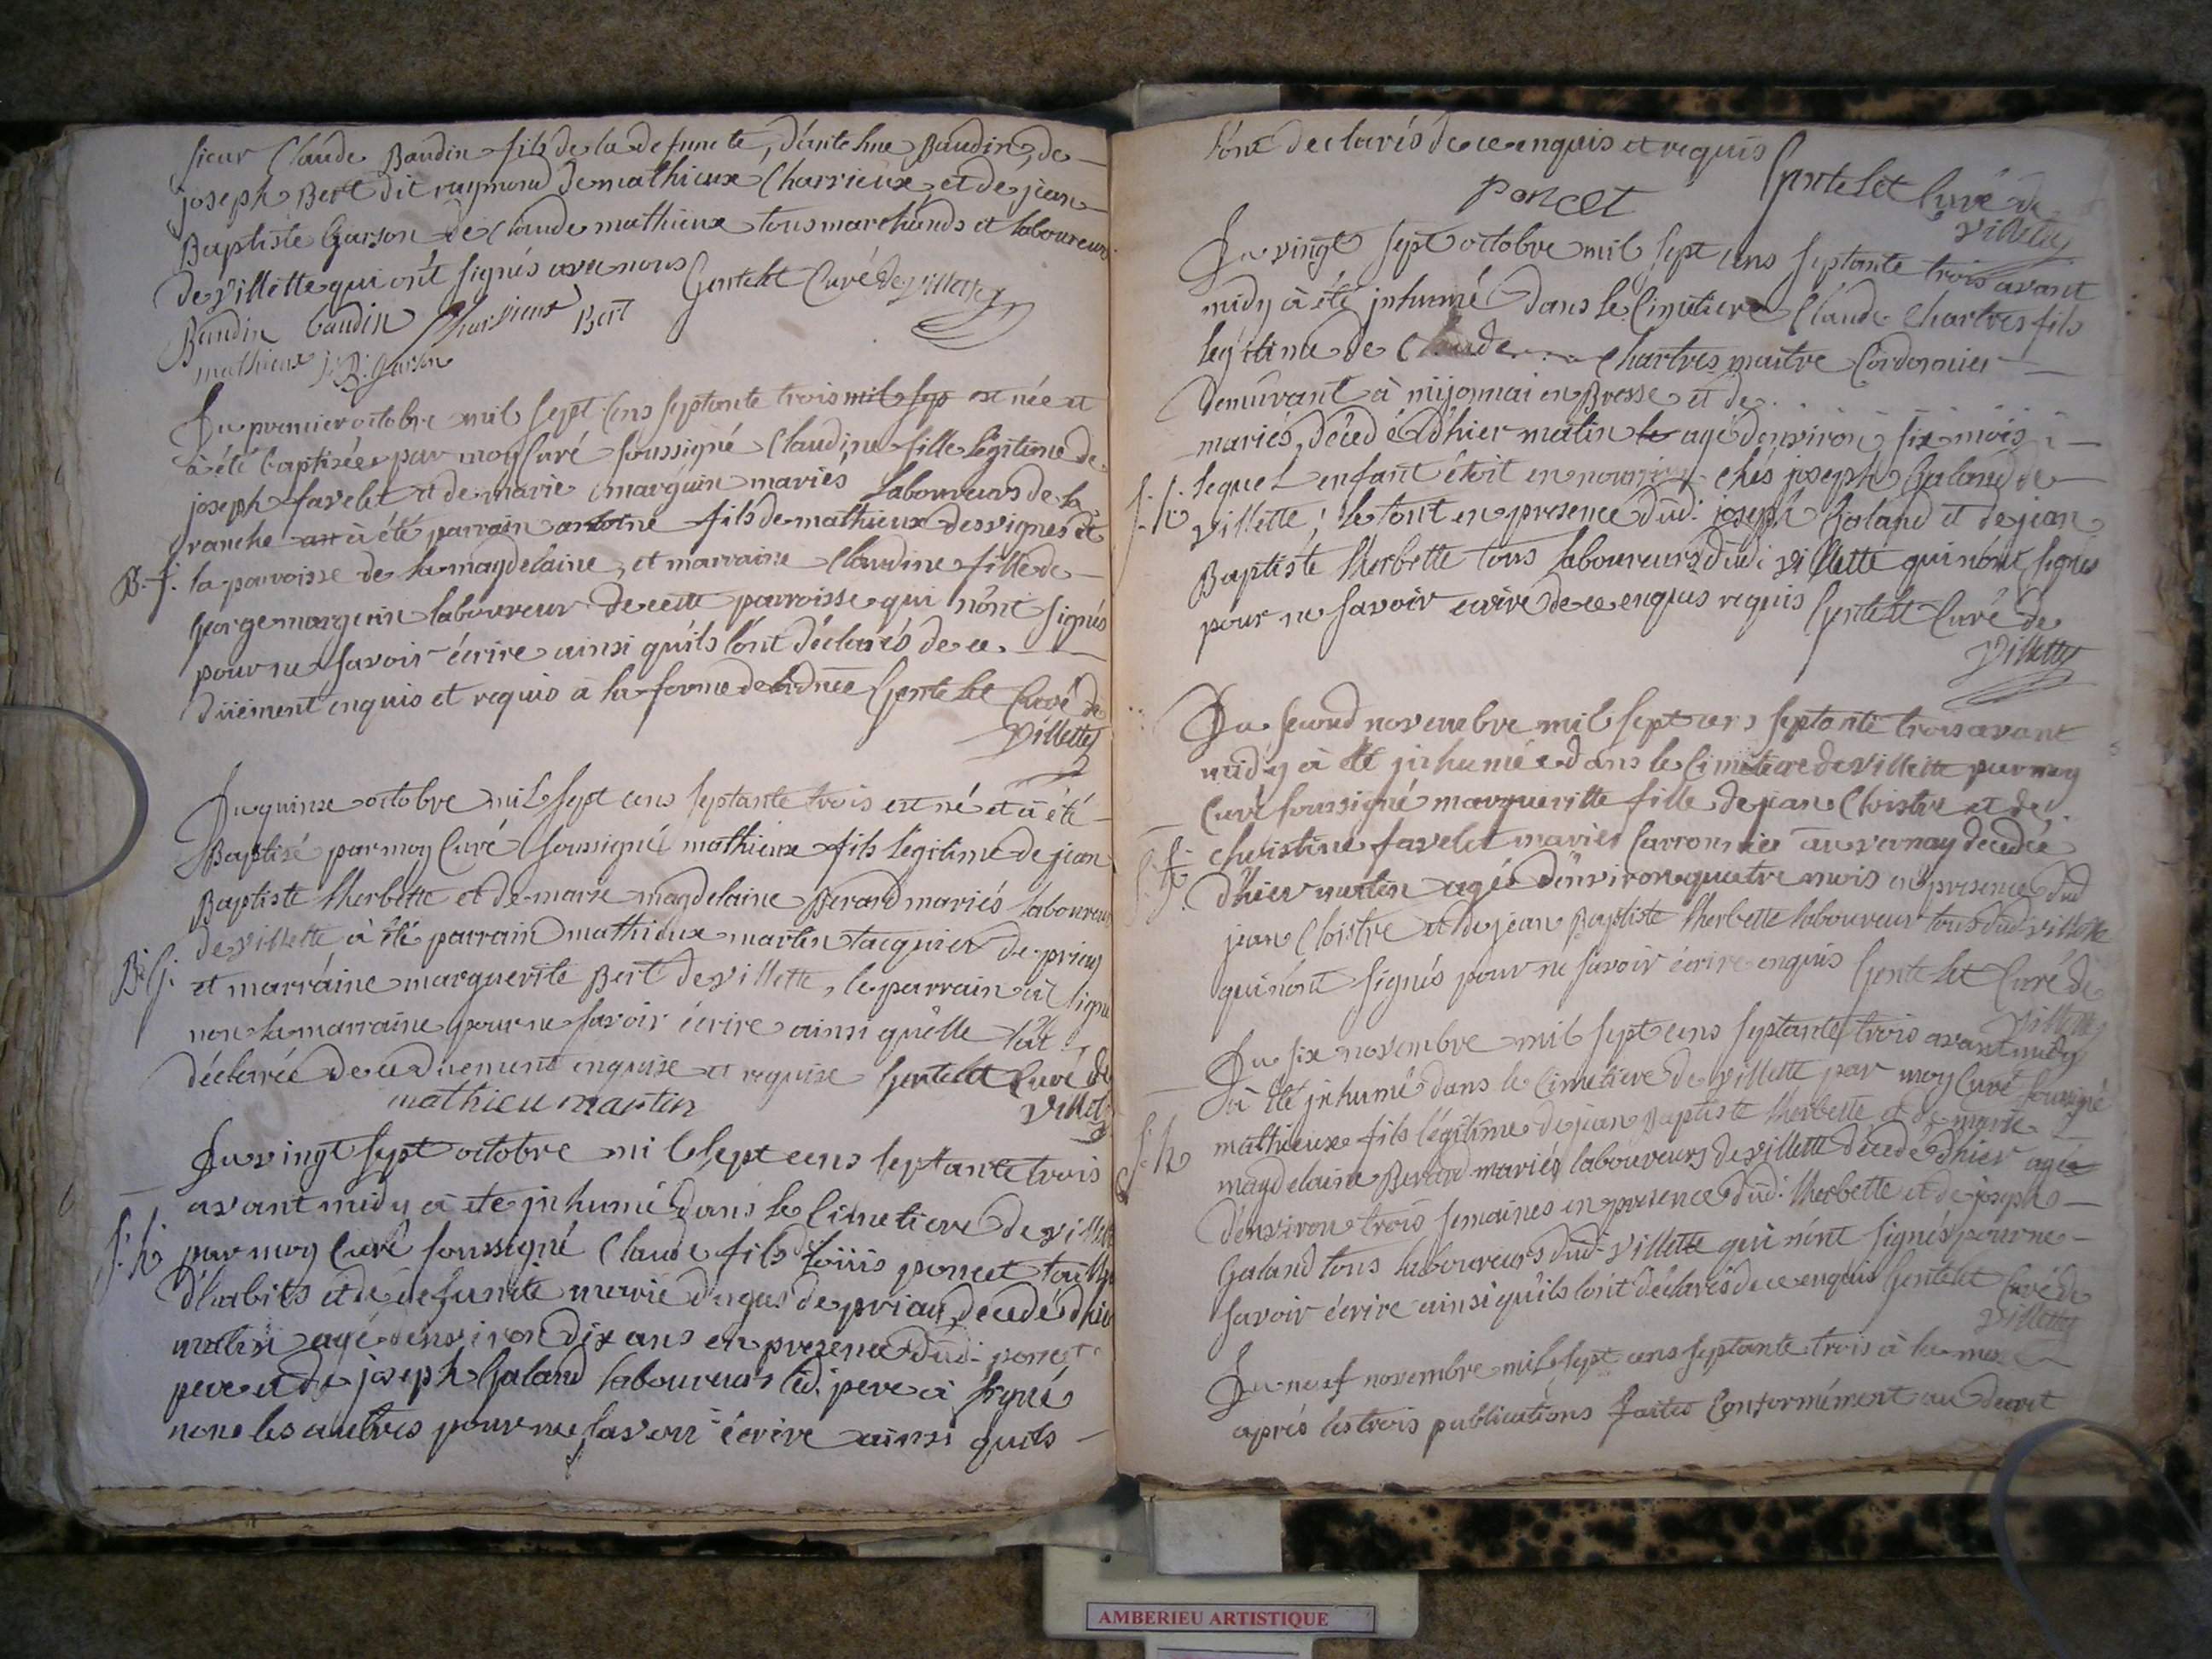 sieur Claude Baudin fils de la defuncte, d'antelme Baudin, de
joseph Bert dit raymond de mathieux Charrieux, et de jean
Baptiste Garson de Claude mathieux tous marchands et laboureurs
de villette qui ont signés avec nous Gentelet Curé de villette
Baudin baudin Charrieux Bert
mathieux J: B: garson
Du premier octobre mil sept cens septante trois mil sep est née et
à été baptisée par moy Curé soussigné Claudine fille légitime de
joseph favelet et de marie marguin mariés laboureurs de la
ranche an à été parrain antoine fils de mathieux desvignes de
B. f. la parroisse de la magdelaine, et marraine Claudine fille de
George marguin laboureur de cette parroisse qui n'ont signés
pour ne savoir écrire ainsi qu'ils l'ont déclarés de ce
düement enquis et requis à la forme de Gentelet Curé de
villette
Du quinze octobre mil sept cens septante trois est né et à été
Baptisé par moy Curé soussigné mathieux fils légitime de jean
Baptiste lherbette et de marie magdelaine Berard mariés laboureurs
de villette à été parrain mathieux martin tacquier de priay
B. G. et marraine marguerite Bert de villette, le parrain à signé
non la marraine pour ne savoir écrire ainsi qu'elle l'at
déclarée de ce düement enquise et requise Gentelet Curé de
mathieu martin villette
Du vingt sept octobre mil sept cens septante trois
avant midy à eté inhumé dans le Cimetiere de villette
s. h. par moy Curé soussigné Claude fils de loüis poncet
d'habits et de defuncte marie de priay decedé d'hier
matin agé d'environ dix ans en presence dud. poncet
pere et de joseph Galand laboureurs led. pere à signé
non les autres pour ne savoir écrire ainsi qu'ils
l'ont declarés de ce enquis et requis Gentelet Curé de
poncet villette
Du vingt sept octobre mil sept cens septante trois avant
midy à été inhumé dans le Cimetiere Claude Chartres fils
légitime de Claude Chartres maitre Cordonnier
demeurant à mijonnai en Bresse et de
mariés, décedé d'hier matin le agé d'environ six mois
s. h. lequel enfant étoit en nourrice chés joseph Galand de
villette; le tout en presence dud. joseph Galand et de jean
Baptiste lherbette tous laboureurs dud. villette qui n'ont signés
pour ne savoir écrire de ce enquis requis Gentelet Curé de
villette
Du second novembre mil sept cens septante trois avant
midy à été inhumée dans le Cimetiere de villette par moy
Curé soussigné margueritte fille de jean Cloistre et de
christine favelet mariés au vernay decedée
d'hier matin agée d'environ quatre mois en presence dud
jean Cloistre et de jean Baptiste lherbette laboureur tous dud villette
qui n'ont signés pour ne savoir écrire enquis Gentelet Curé de
villette
Du six novembre mil sept cens septante trois avant midy
à été inhumé dans le Cimetiere de villette par moy Curé soussigné
s. h. mathieux fils légitime de jean Baptiste lherbette et de marie
magdelaine Berard mariés laboureurs de villette décedé d'hier agé
d'environ trois semaines en presence dud. lherbette et de joseph
Galand tous laboureurs dud. villette qui n'ont signés pour ne
savoir écrire ainsi qu'ils l'ont déclarés de ce enquis Gentelet Curé de
villette
Du neuf novembre mil sept cens septante trois à la messe
après les trois publications faites Conformément au decret
AMBERIEU ARTISTIQUE